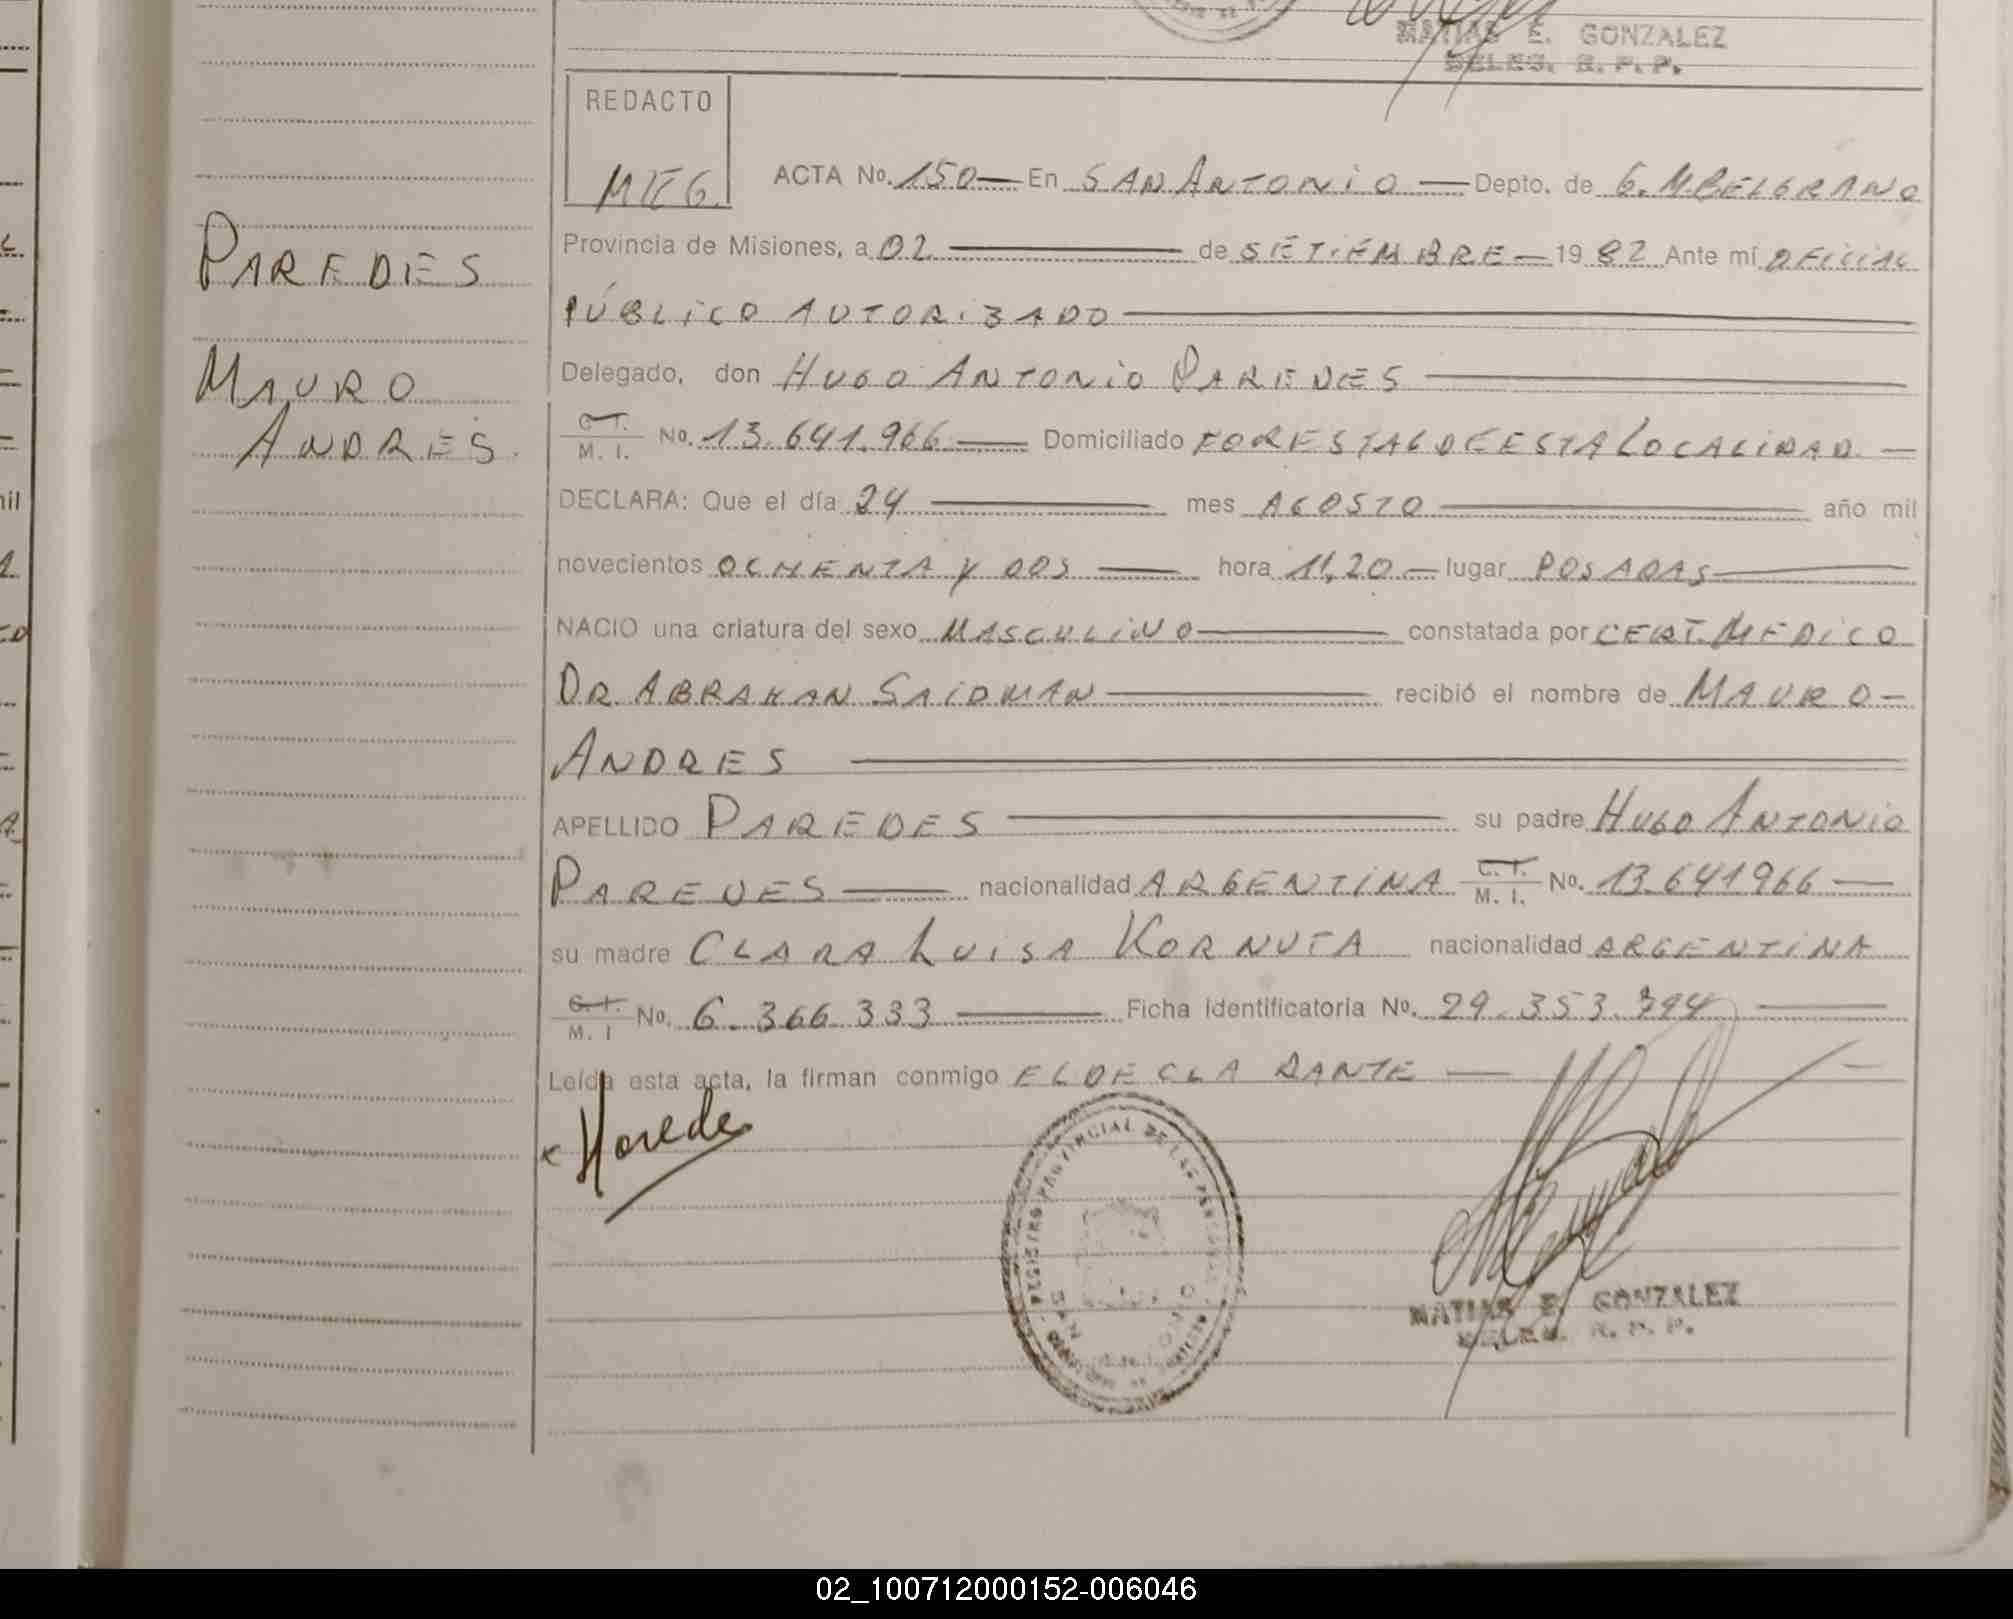 MATIAS E. GONZALEZ
DELEG. R. P. P.
REDACTO
MEG.
ACTA No. 150 En SAN ANTONIO Depto. de G. M BELGRANO
Provincia de Misiones, a 02 de SETIEMBRE 1982 Ante mí OFICIAL
PÚBLICO AUTORIZADO
Delegado, don HUGO ANTONIO PAREDES
C. I.
M. I. No. 13.641.966 Domiciliado FORESTAL DE ESTA LOCALIDAD.
DECLARA: Que el día 24 mes AGOSTO año mil
novecientos OCHENTA Y DOS hora 11,20 lugar POSADAS
NACIO una criatura del sexo MASCULINO constatada por CERT. MEDICO
DR. ABRAHAN SAIDMAN recibió el nombre de MAURO
ANDRES
APELLIDO PAREDES su padre HUGO ANTONIO
PAREDES nacionalidad ARGENTINA C. I.
M. I. No. 13.641966
su madre CLARA LUISA KORNUTA nacionalidad ARGENTINA
C. I.
M. I No. 6.366.333 Ficha Identificatoria No. 29.353.794
Leída esta acta, la firman conmigo EL DECLARANTE
PAREDES
MAURO
ANDRES.
REGISTRO PROVINCIAL DE LAS PERSONAS
MATIAS E. GONZALEZ
DELEG. R. P. P.
02_100712000152-006046